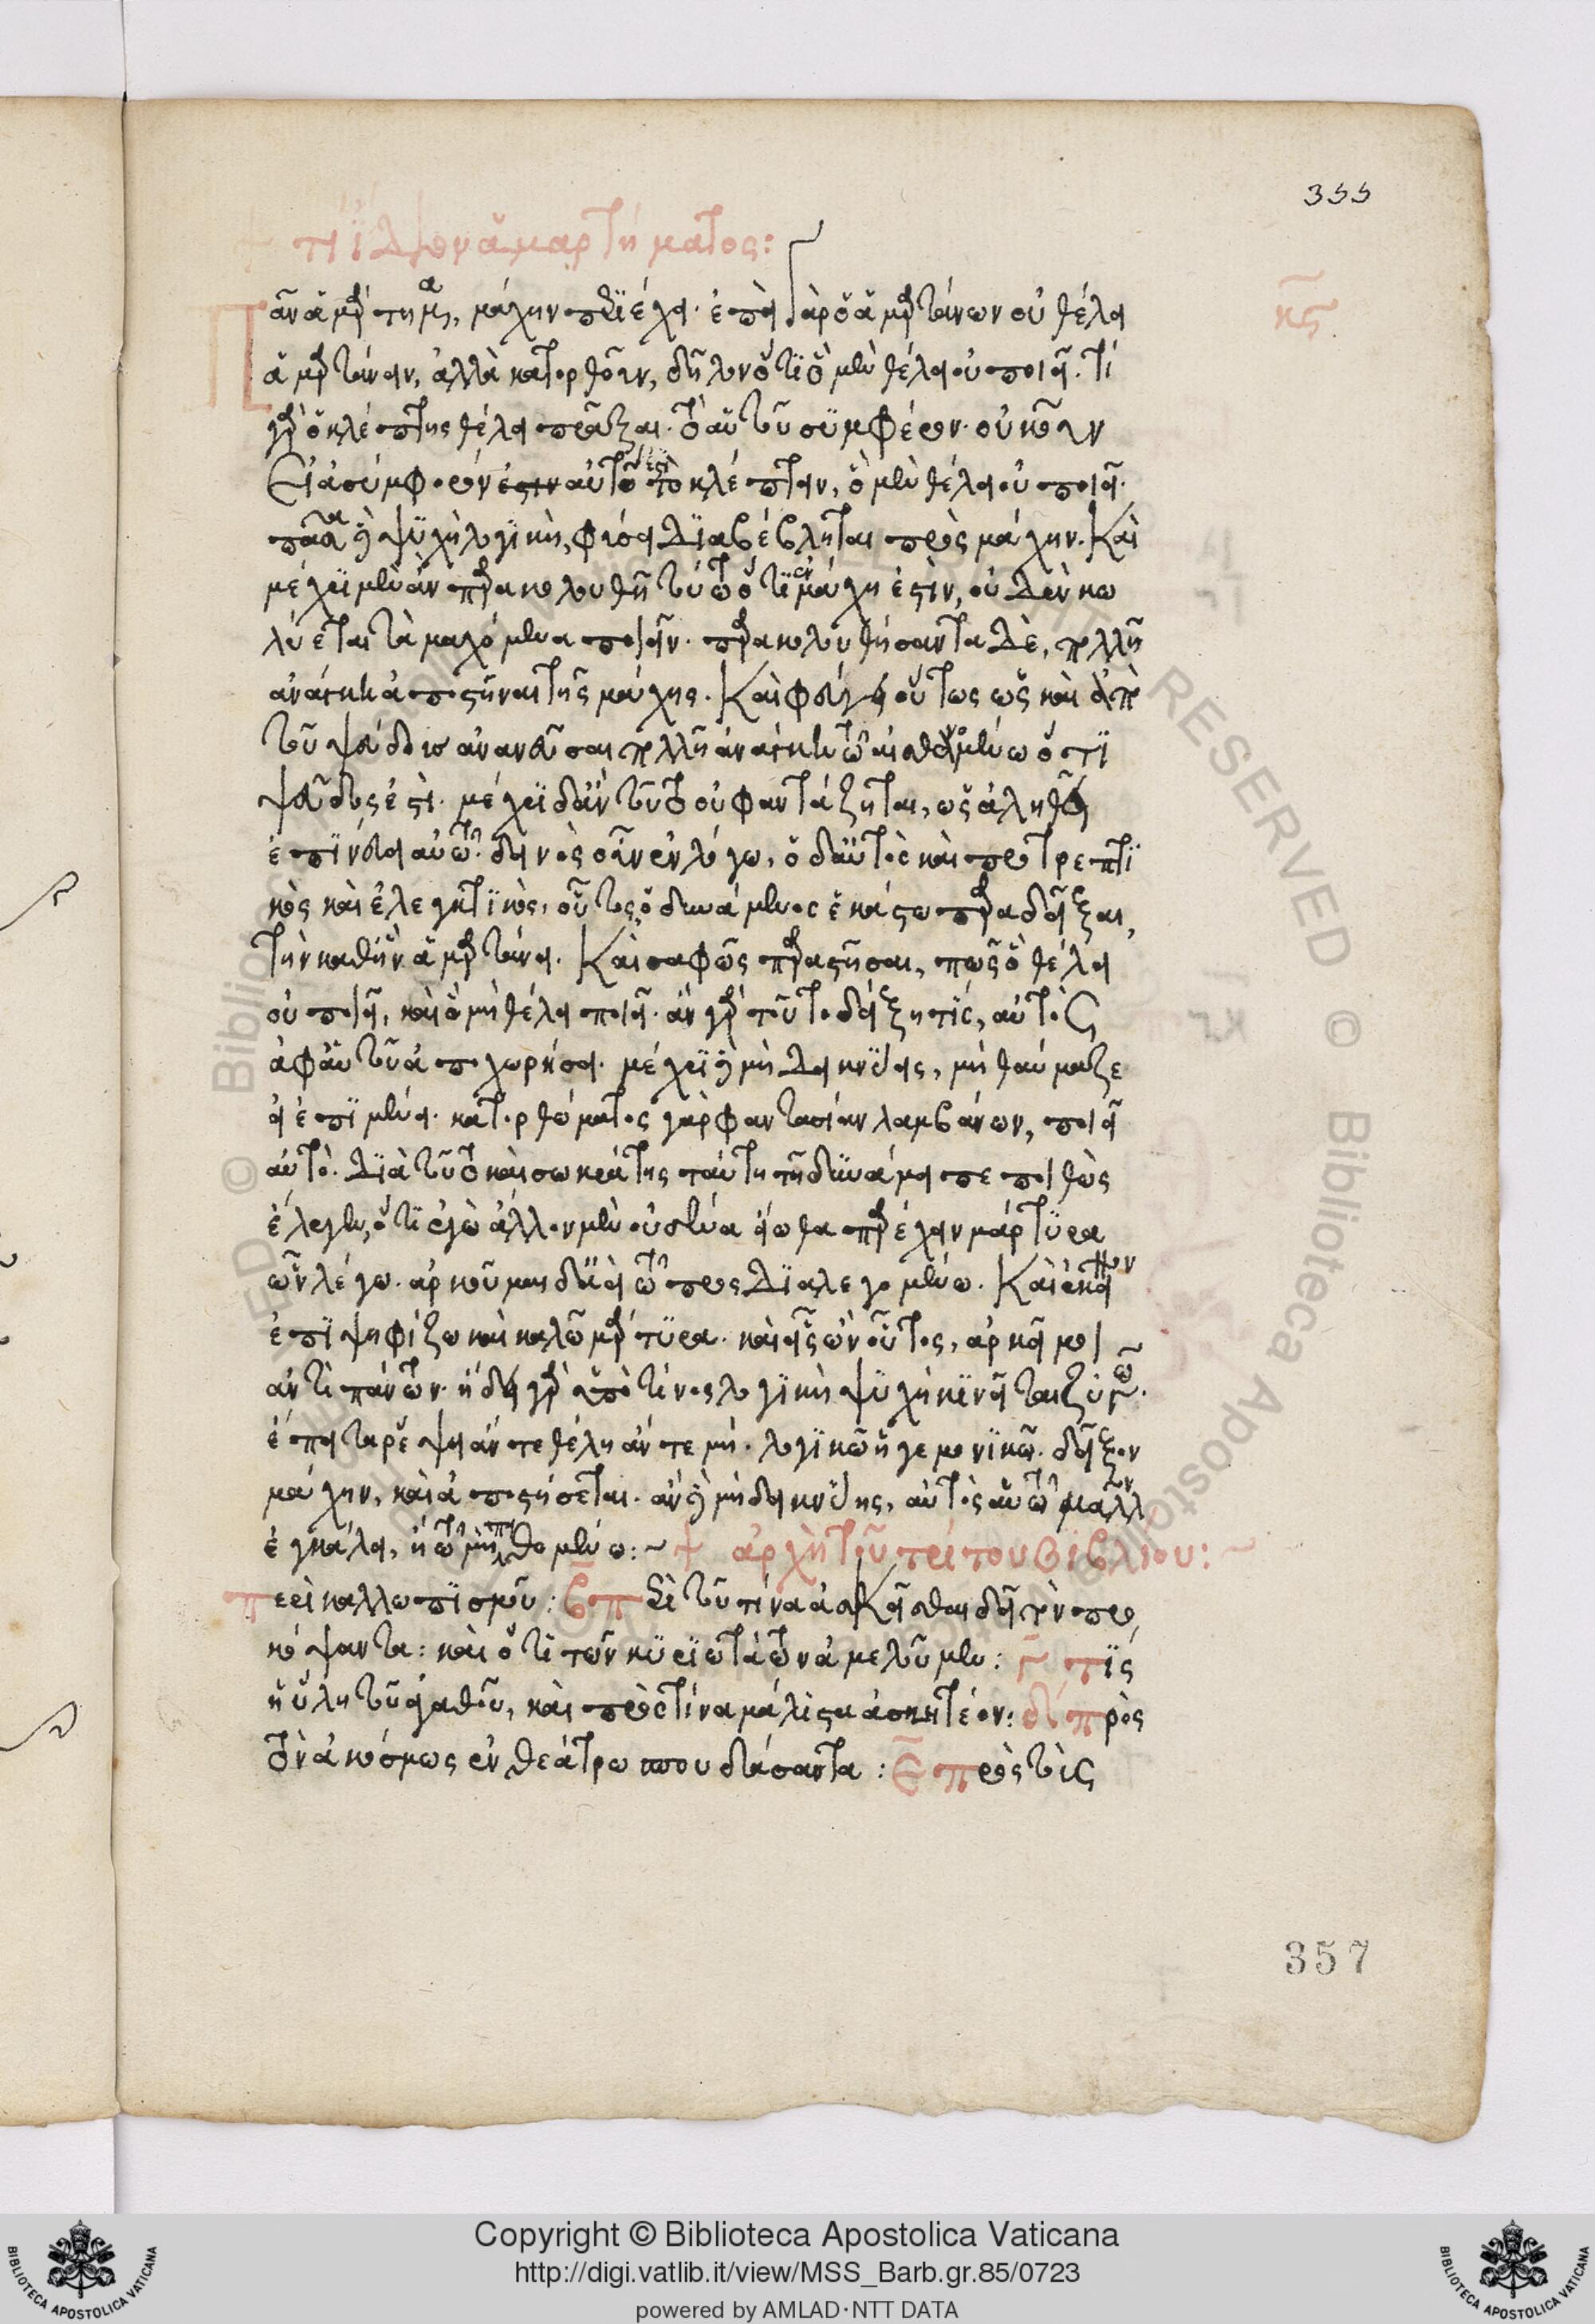 355
τί ἴδιον ἁμαρτήματος:
κς
Πᾶν ἁμάρτημα, μάχην περιέχει. ἐπεὶ γὰρ ὁ ἁμαρτάνων οὐ θέλει
ἁμαρτάνειν, ἀλλὰ κατορθῶσαι, δῆλον ὅτι ὃ μὲν θέλει οὐ ποιεῖ. τί
γὰρ ὁ κλέπτης θέλει πρᾶξαι. τὸ αὑτοῦ συμφέρον. οὐκοῦν
εἰ ἀσύμφορόν ἐστιν αὐτῷ τὸ κλέπτειν, ὃ μὲν θέλει οὐ ποιεῖ.
πᾶσα δὲ ψυχὴ λογικὴ, φύσει διαβέβληται πρὸς μάχην. Καὶ
μέχρι μὲν ἂν παρακολουθῇ τούτῳ ὅτι ἐν μάχῃ ἐστὶν, οὐδὲν κω
λύεται τὰ μαχόμενα ποιεῖν. παρακολουθήσαντα δὲ, πολλὴ
ἀνάγκη ἀποστῆναι τῆς μάχης. Καὶ φυγεῖν οὕτως ὡς καὶ ἀπὸ
τοῦ ψεύδους ἀνανεῦσαι πολλὴ ἀνάγκη τῷ αἰσθομένῳ ὅτι
ψεῦδος ἐστι. μέχρι δ' ἂν τοῦτο οὐ φαντάζηται, ὡς ἀληθεῖ
ἐπινεύει αὐτῷ. δεινὸς οὖν ἐν λόγῳ, ὁ δ' αὐτὸς καὶ προτρεπτι
κὸς καὶ ἐλεγκτικὸς, οὗτος ὁ δυνάμενος ἑκάστῳ παραδεῖξαι,
τὴν καθ' ἣν ἁμαρτάνει. Καὶ σαφῶς παραστῆσαι, πῶς ὃ θέλει
οὐ ποιεῖ, καὶ ὃ μὴ θέλει ποιεῖ. ἂν γὰρ τοῦτο δείξῃ τίς, αὐτὸς
ἀφ' αὑτοῦ ἀποχωρήσει. μέχρι δὲ μὴ δεικνύεις, μὴ θαύμαζε
εἰ ἐπιμένει. κατορθώματος γὰρ φαντασίαν λαμβάνων, ποιεῖ
αὐτό. διὰ τοῦτο καὶ σωκράτης ταύτῃ τῇ δυνάμει πεποιθὼς
ἔλεγεν, ὅτι ἐγὼ ἄλλον μὲν οὐδένα εἴωθα παρέχειν μάρτυρα
ὧν λέγω. ἀρκοῦμαι δ' ἀεὶ τῷ προσδιαλεγομένῳ. Καὶ ἐκεῖνον
ἐπιψηφίζω καὶ καλῶ μάρτυρα. καὶ εἷς ὢν οὗτος, ἀρκεῖ μοι
ἀντὶ πάντων. ᾔδει γὰρ ὑπὸ τίνος λογικὴ ψυχὴ κινεῖται ζυγῷ.
ἐπεὶ τὰ ῥέψει ἄν τε θέλῃ ἄν τε μή. λογικῷ ἡγεμονικῷ. δεῖξον
μάχην, καὶ ἀποστήσεται. ἂν δὲ μὴ δεικνύῃς, αὐτὸς αὑτῷ μᾶλλον
ἐγκάλει, ἢ τῷ μὴ πειθομένῳ:~ + ἀρχὴ τοῦ τρίτου βιβλίου:~
περὶ καλλωπισμοῦ: β περὶ τοῦ τίνα ἀσκεῖσθαι δεῖ τὸν προ
κόψαντα: καὶ ὅτι τῶν κυριωτάτων ἀμελοῦμεν: γ τίς
ἡ ὕλη τοῦ ἀγαθοῦ, καὶ πρὸς τίνα μάλιστα ἀσκητέον: δ πρὸς
τὸν ἀκόσμως ἐν θεάτρῳ σπουδάσαντα: ε πρὸς τοὺς
357
Copyright © Biblioteca Apostolica Vaticana
http://digi.vatlib.it/view/MSS_Barb.gr.85/0723
powered by AMLAD·NTT DATA